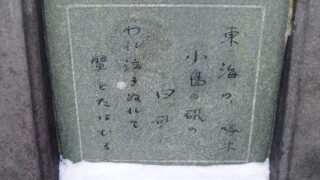 東海の
小島の磯の
白砂に
われ泣きぬれて
蟹とたはむる
啄木